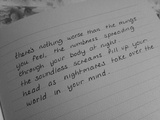 there's nothing worse than the things
you feel, the numbness spreading
through your body at night.
the soundless screams fill up your
head as nightmares take over the
world in your mind.